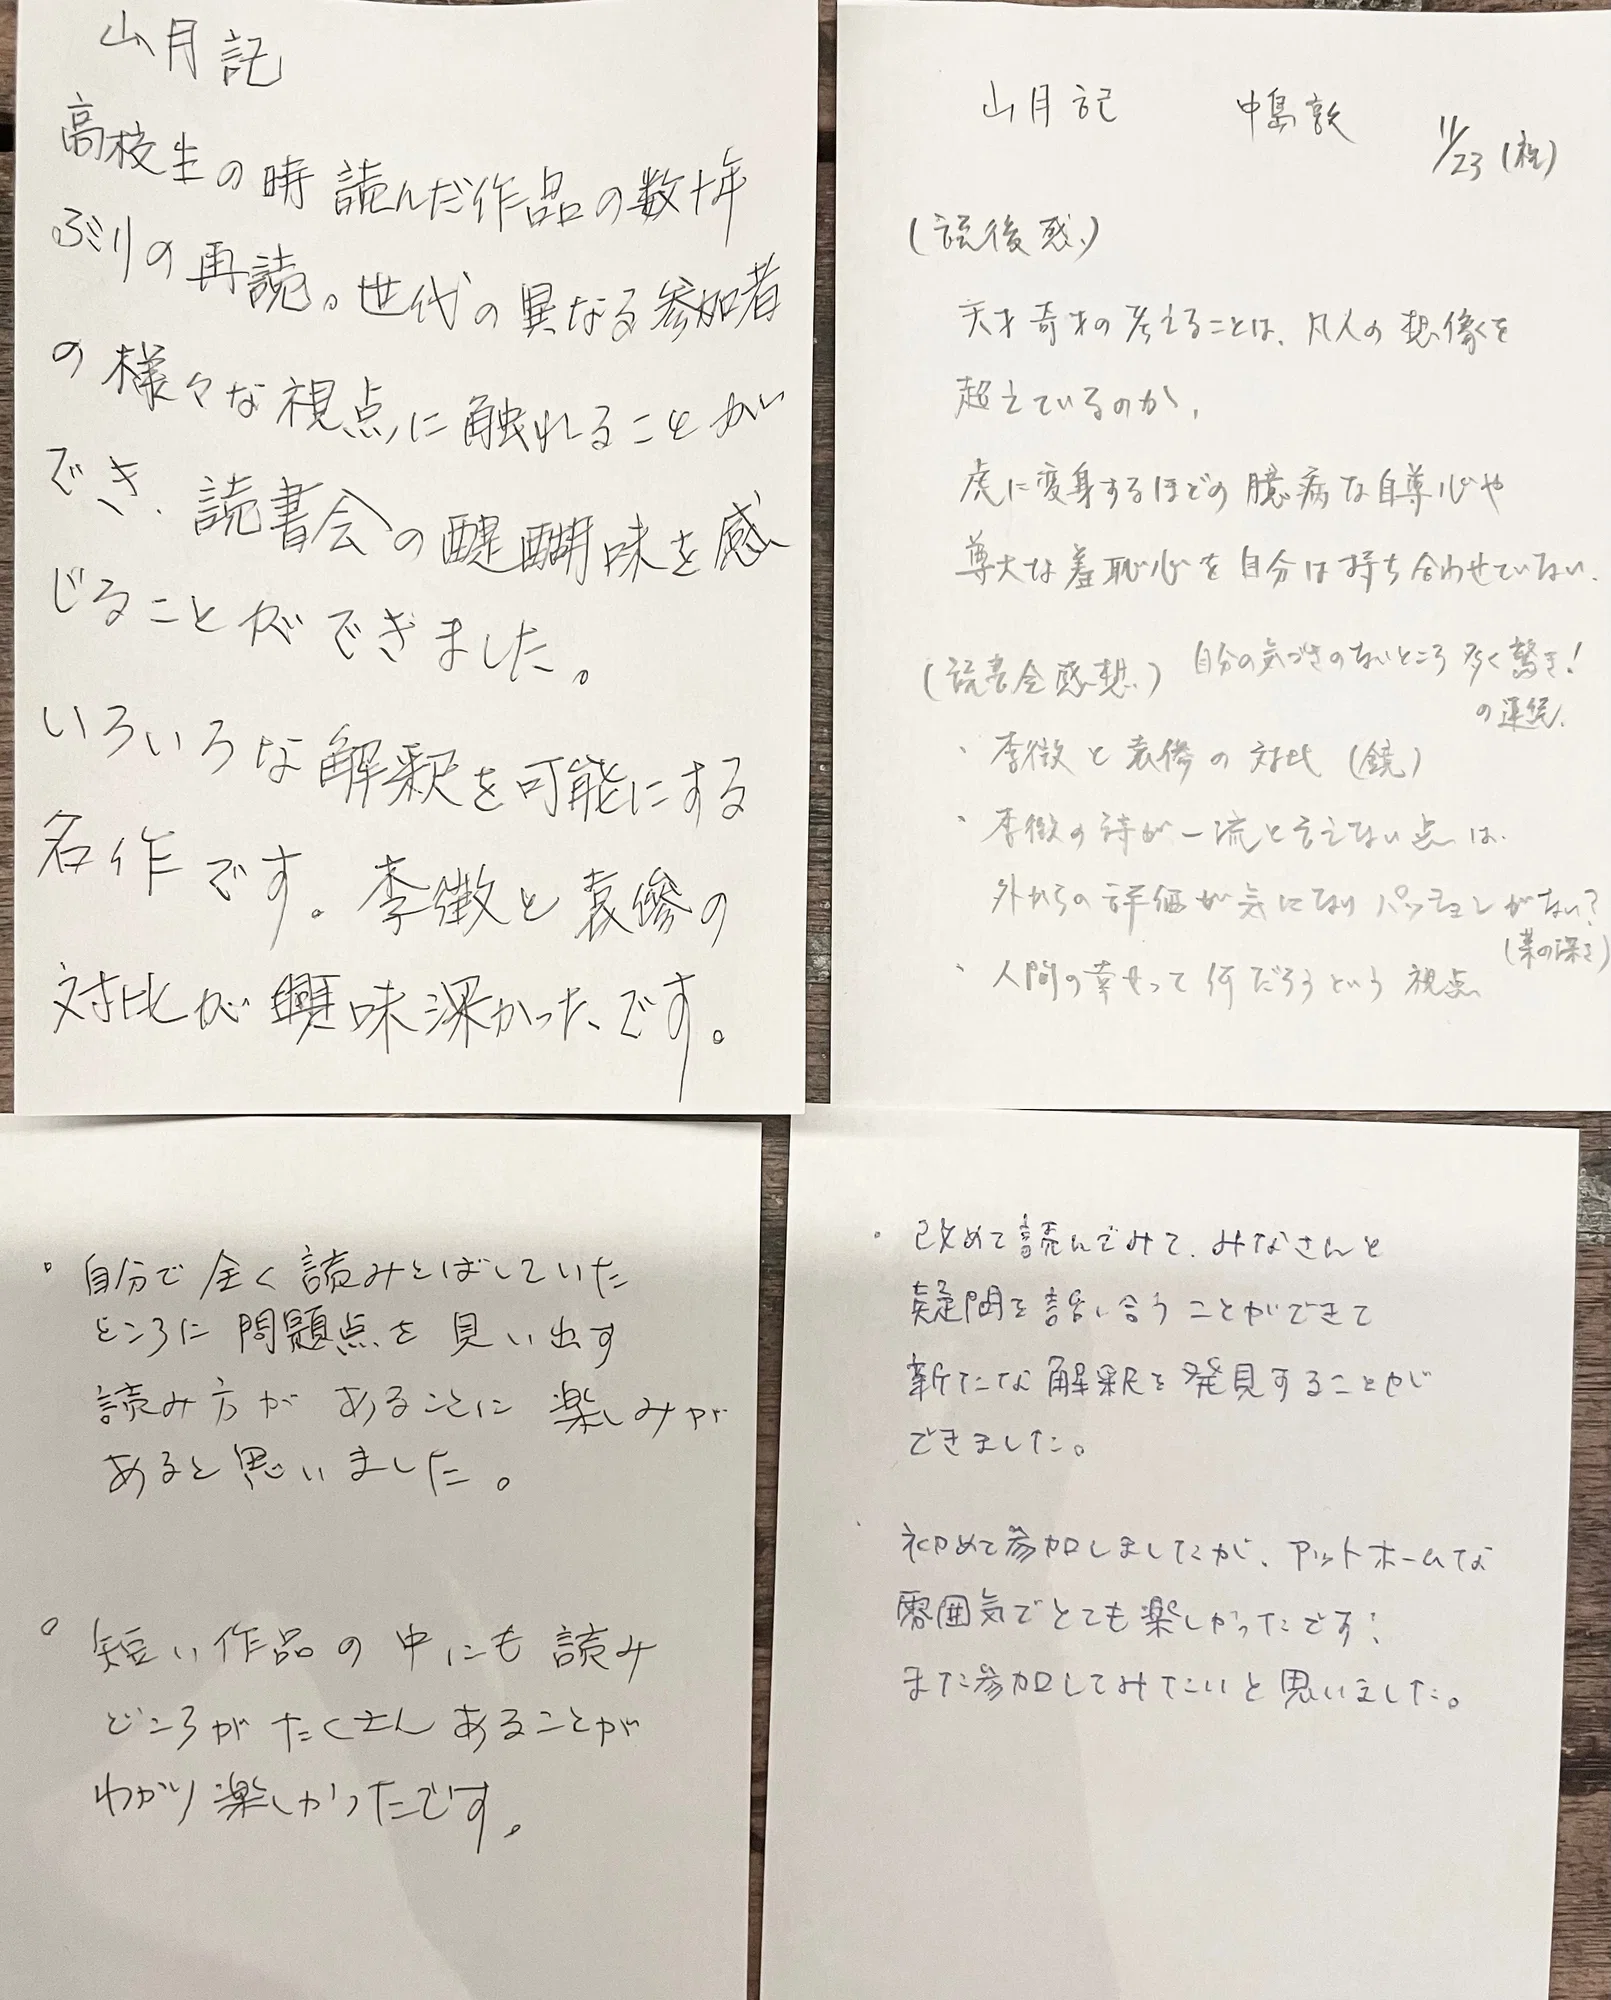 山月記
高校生の時読んだ作品の数十年
ぶりの再読。世代の異なる参加者
の様々な視点に触れることが
でき、読書会の醍醐味を感
じることができました。
いろいろな解釈を可能にする
名作です。李徴と袁傪の
対比が興味深かったです。
山月記 中島敦 11/23(祝)
(読後感)
天才奇才の考えることは、凡人の想像を
超えているのか、
虎に変身するほどの臆病な自尊心や
尊大な羞恥心を自分は持ち合わせていない、
(読書会感想) 自分の気づきのないところ多く驚き!
の連続、
・李徴と袁傪の対比(鏡)
・李徴の詩が一流と言えない点は、
外からの評価が気になりパッションがない?
(業の深さ)
・人間の幸せって何だろうという視点
・自分で全く読みとばしていた
ところに問題点を見い出す
読み方があることに楽しみが
あると思いました。
・短い作品の中にも読み
どころがたくさんあることが
わかり楽しかったです。
・改めて読んでみて、みなさんと
疑問を話い合うことができて
新たな解釈を発見することが
できました。
・初めて参加しましたが、アットホームな
雰囲気でとても楽しかったです!
また参加してみたいと思いました。